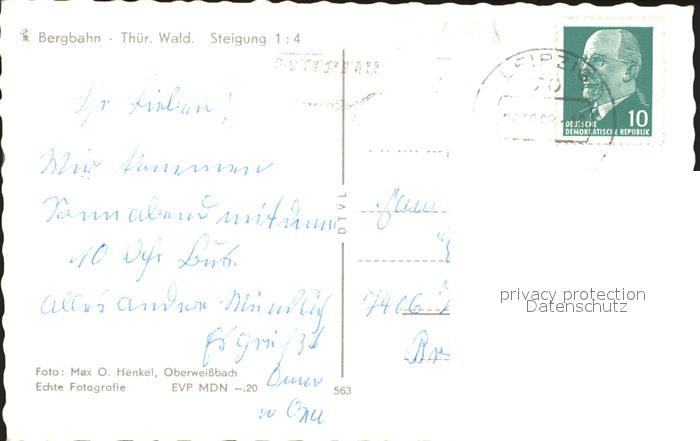 Bergbahn - Thür. Wald. Steigung 1:4
LEIPZIG
70
DEUTSCHE
DEMOKRATISCHE REPUBLIK
10
Ihr Lieben!
Wir kommen
Sonnabend mit dem
10 Uhr Bus.
Alles andere Mündlich
Es grüßt
DTVL
7406
Foto: Max O. Henkel, Oberweißbach
Echte Fotografie EVP MDN –.20
563
privacy protection
Datenschutz